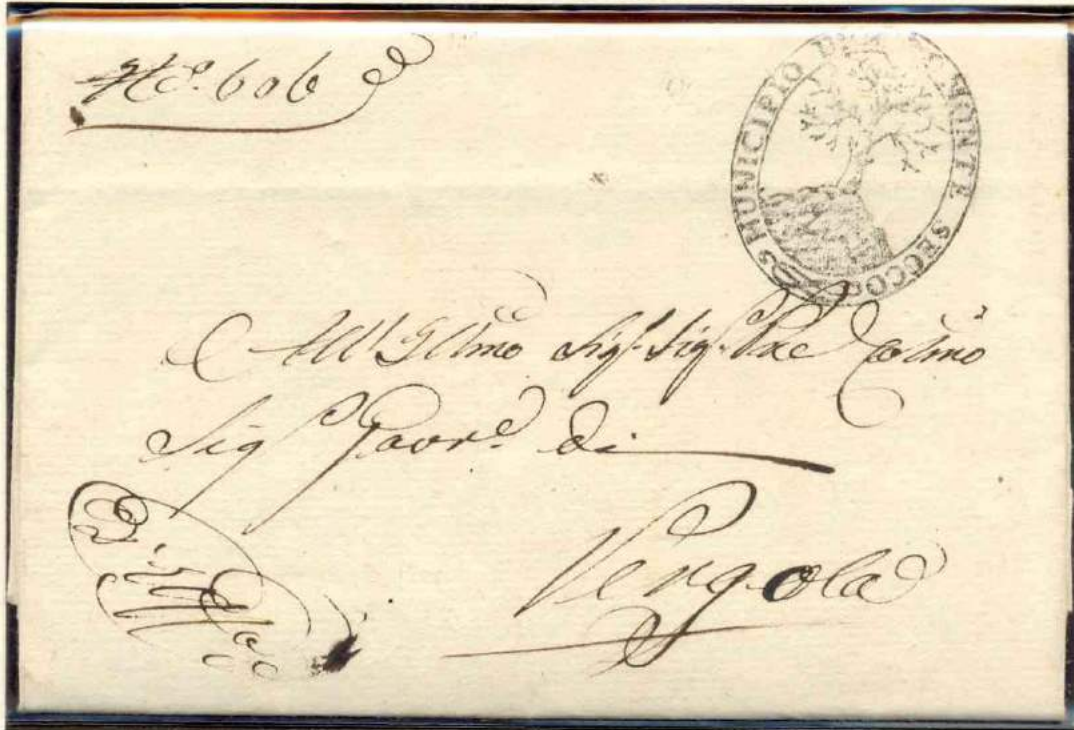 No. 606
MUNICIPIO DI MONTE SECCO
All' Illmo Sigr. Sigr. Pne Colmo
Sigr Govre. di
Pergola